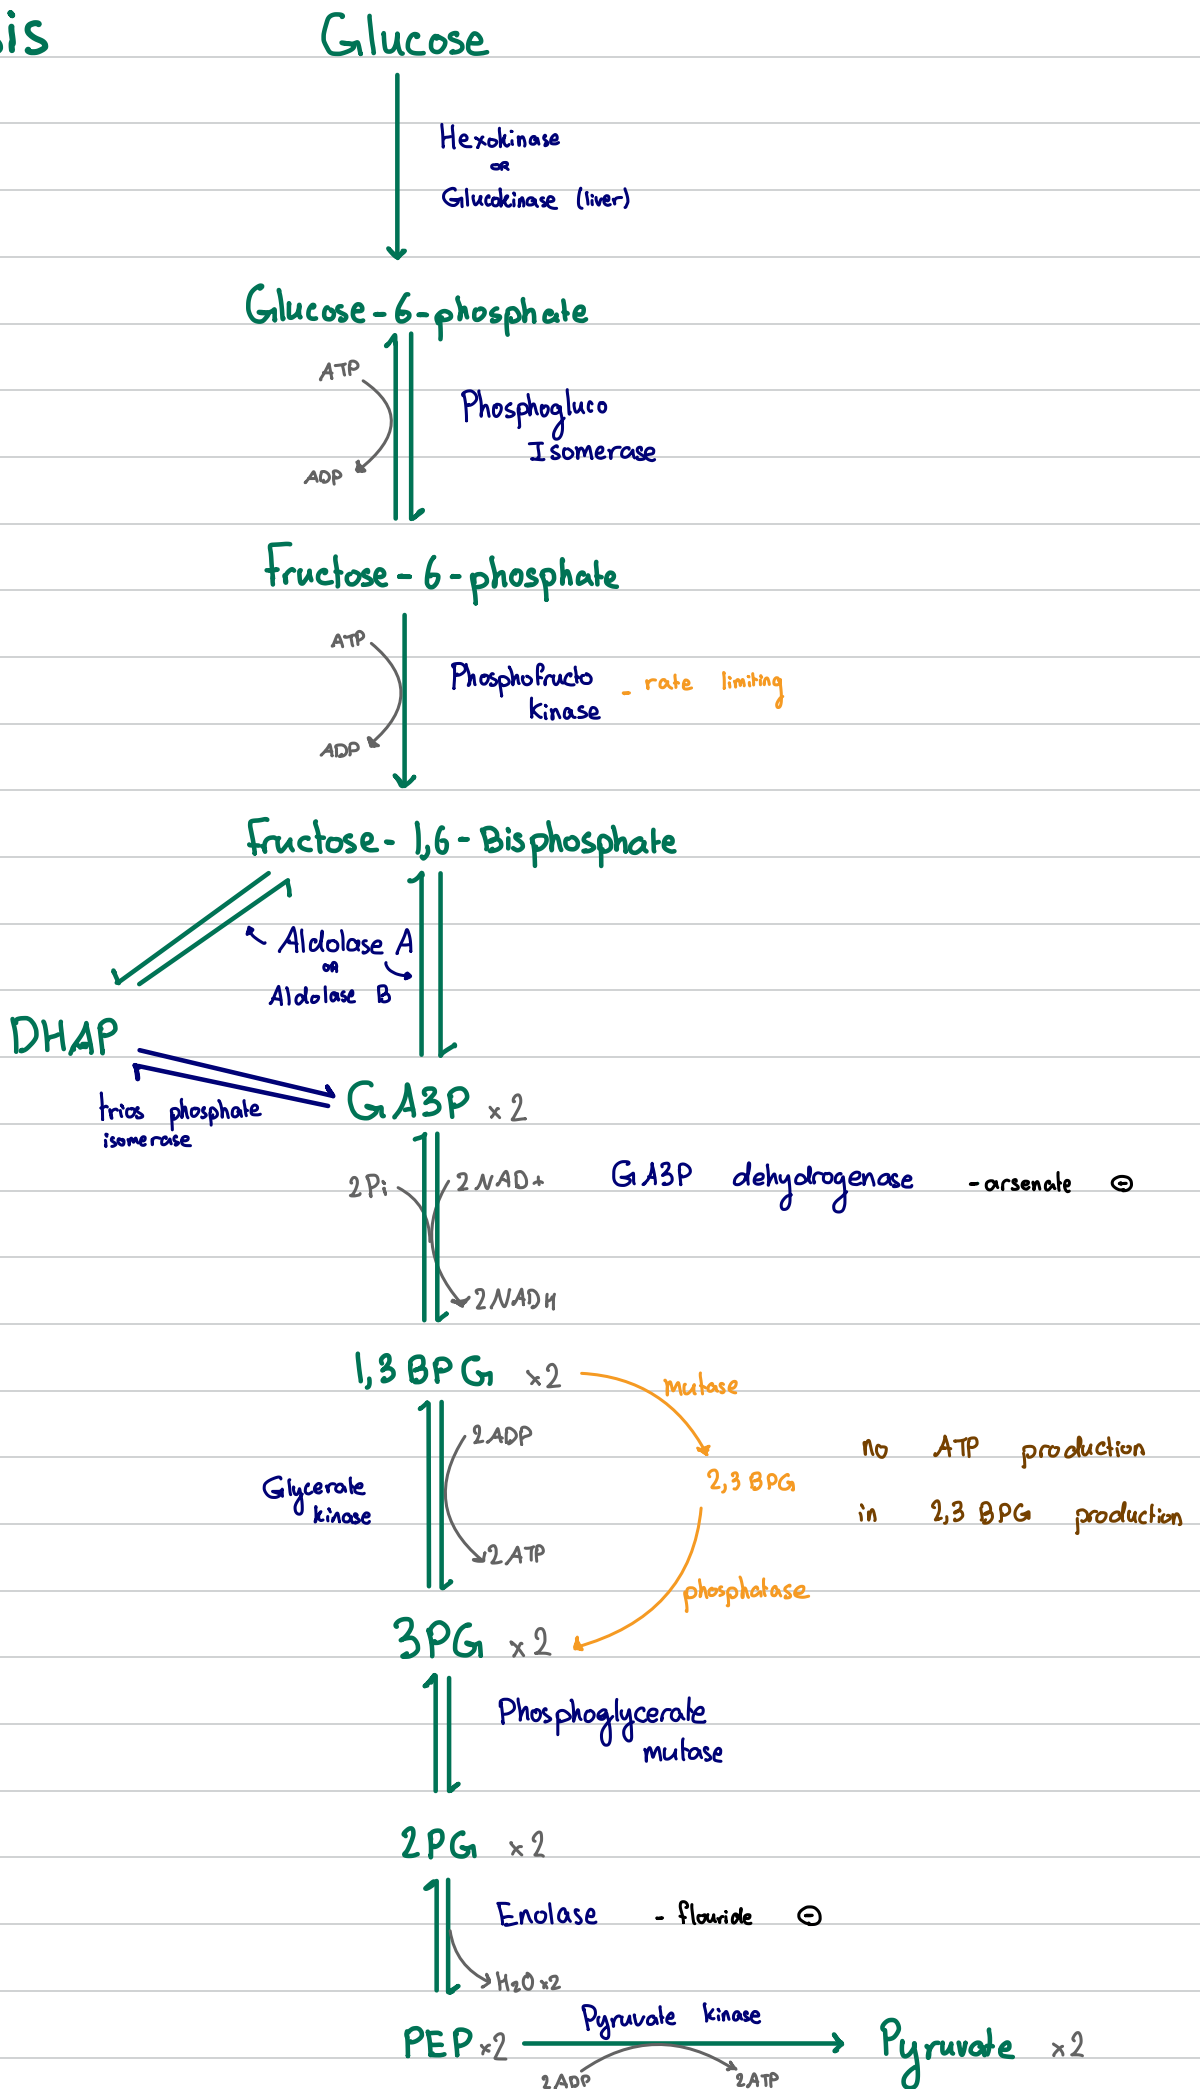 is
Glucose
Hexokinase
OR
Glucokinase (liver)
Glucose-6-phosphate
ATP
Phosphogluco
Isomerase
ADP
Fructose-6-phosphate
ATP
Phosphofructo
kinase
- rate limiting
ADP
Fructose-1,6-Bisphosphate
Aldolase A
OR
Aldolase B
DHAP
trios phosphate
isomerase
GA3P x2
2Pi
2NAD+
GA3P dehydrogenase - arsenate ⊖
2NADH
1,3 BPG x2
mutase
2ADP
2,3 BPG
no ATP production
in 2,3 BPG production
Glycerate
kinase
2ATP
phosphatase
3PG x2
Phosphoglycerate
mutase
2PG x2
Enolase - flouride ⊖
H2O x2
PEP x2
Pyruvate kinase
Pyruvate x2
2ADP
2ATP